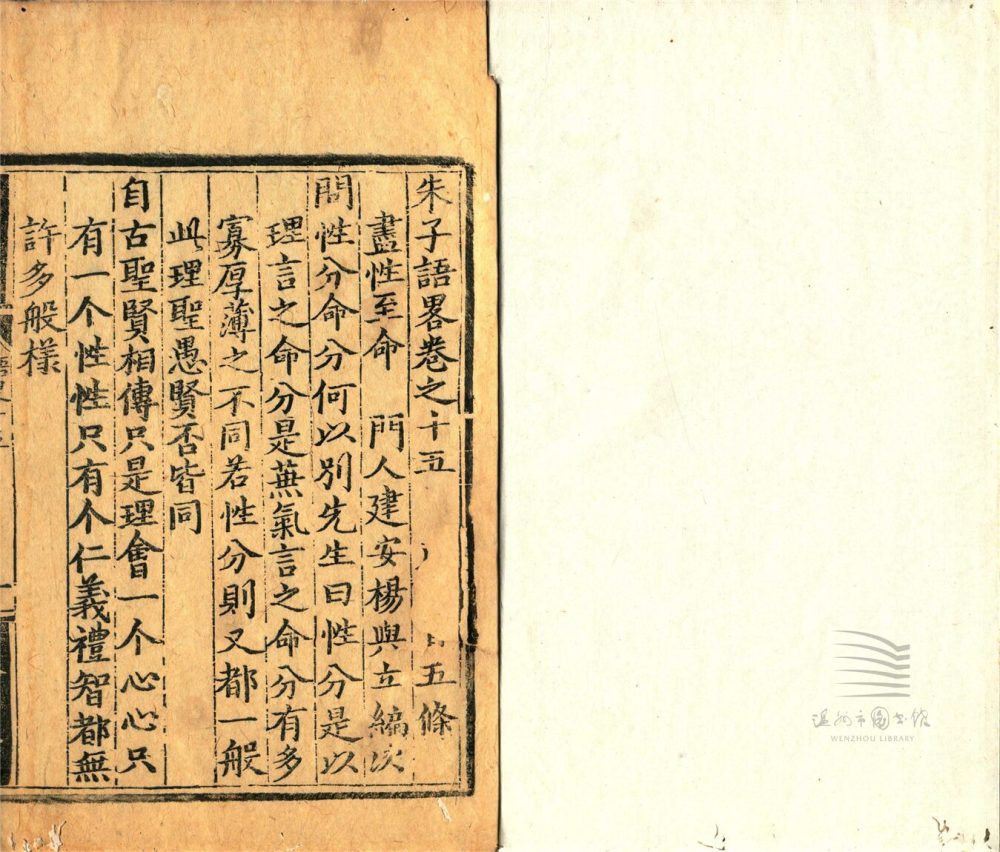 朱子語畧卷之十五 五條
盡性至命 門人建安楊與立編次
問性分命分何以別先生曰性分是以
理言之命分是蕪氣言之命分有多
寡厚薄之不同若性分則又都一般
此理聖愚賢否皆同
自古聖賢相傳只是理會一个心心只
有一个性性只有个仁義禮智都無
許多般樣
温州市圖書館
WENZHOU LIBRARY